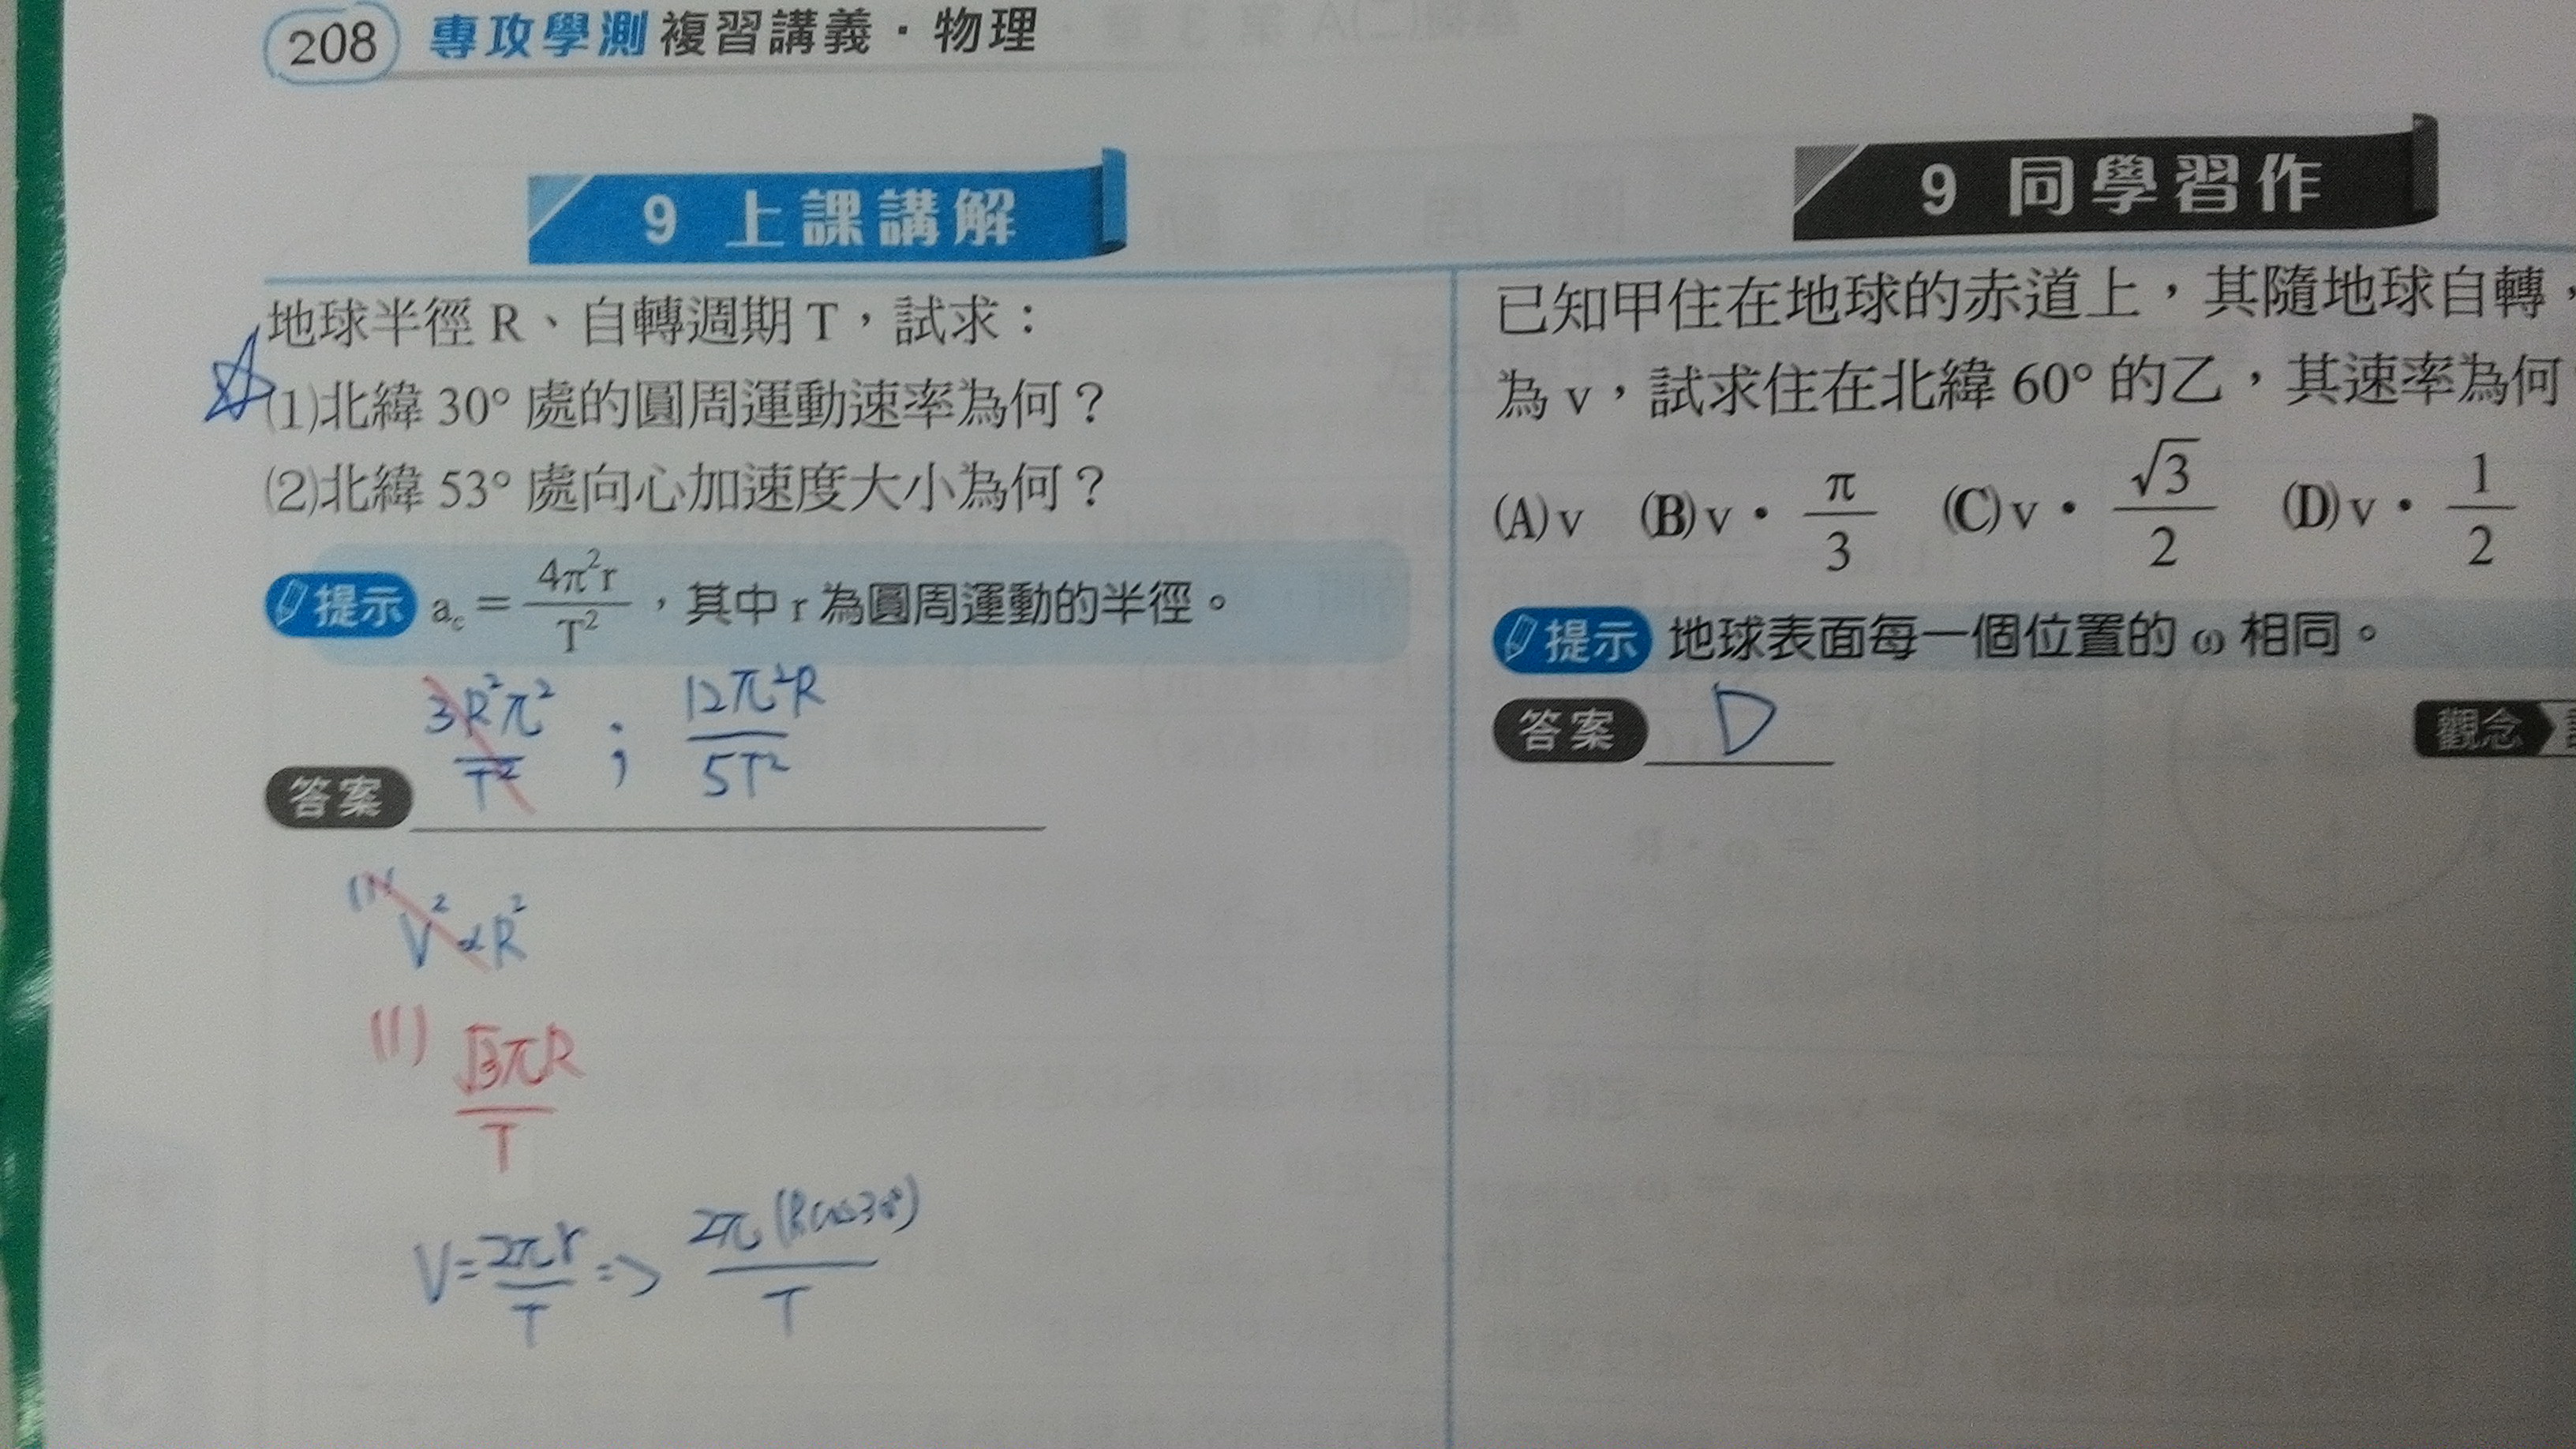 208 專攻學測 複習講義・物理
9 上課講解
地球半徑 R、自轉週期 T，試求：
(1)北緯 30° 處的圓周運動速率為何？
(2)北緯 53° 處向心加速度大小為何？
提示 a_c = 4π²r / T²，其中 r 為圓周運動的半徑。
3R²π² / T² ； 12π²R / 5T²
答案
(1) V² ∝ R²
(1) √3πR / T
V = 2πr / T => 2π(Rcos30°) / T
9 同學習作
已知甲住在地球的赤道上，其隨地球自轉，
為 v，試求住在北緯 60° 的乙，其速率為何
(A) v (B) v・π/3 (C) v・√3/2 (D) v・1/2
提示 地球表面每一個位置的 ω 相同。
答案 D
觀念